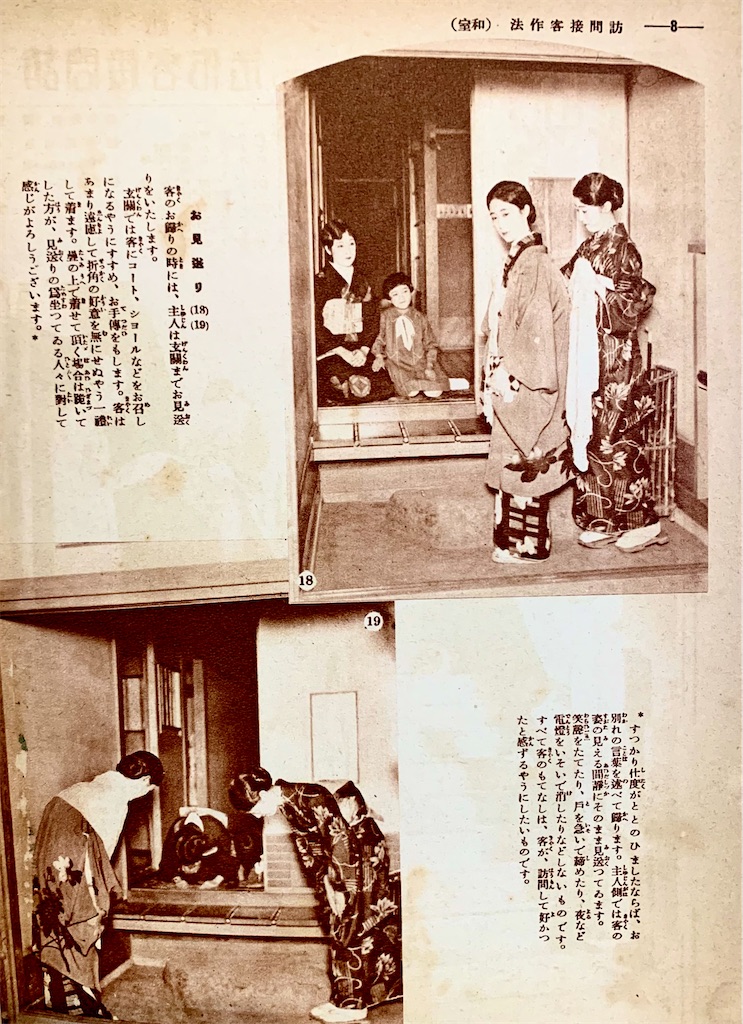 訪問接客作法（和室） ―8―
お見送り (18)(19)
客のお歸りの時には、主人は玄關までお見送
りをいたします。
玄關では客にコート、シヨールなどをお召し
になるやうにすすめ、お手傳をもします。客は
あまり遠慮して折角の好意を無にせぬやう一禮
して着ます。疊の上で着せて頂く場合は跪いて
した方が、見送りの爲坐つてゐる人々に對して
感じがよろしうございます。*
18
19
* すつかり仕度がととのひましたならば、お
別れの言葉を述べて歸ります。主人側では客の
姿の見える間靜にそのまま見送つてゐます。
笑聲をたてたり、戶を急いで締めたり、夜など
電燈をいそいで消したりなどしないものです。
すべて客のもてなしは、客が、訪問して好かつ
たと感ずるやうにしたいものです。